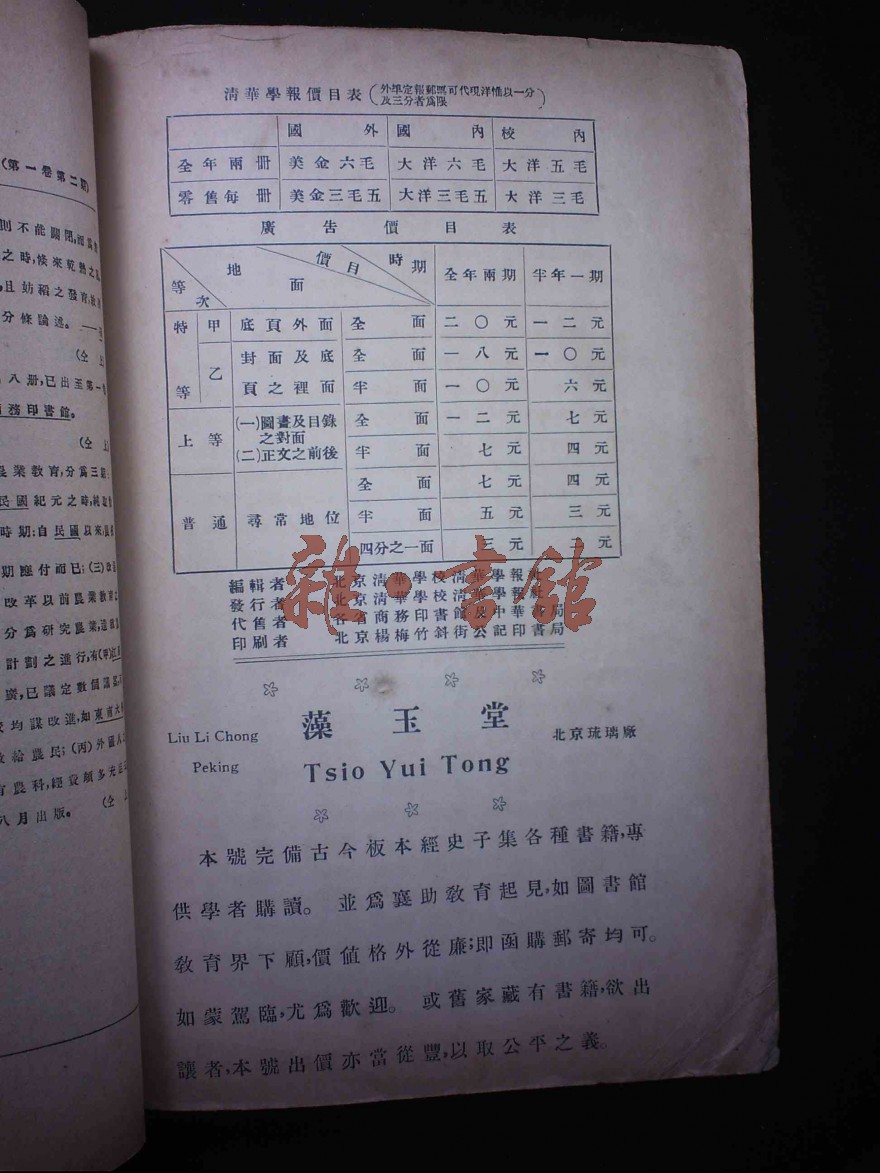 清華學報價目表(外埠定報郵票可代現洋惟以一分
及三分者爲限)
國外 國內 校內
全年兩冊 美金六毛 大洋六毛 大洋五毛
零售每冊 美金三毛五 大洋三毛五 大洋三毛
廣告價目表
等次 地面 價目 時期 全年兩期 半年一期
特等 甲 底頁外面 全面 二〇元 一二元
乙 封面及底 全面 一八元 一〇元
頁之裡面 半面 一〇元 六元
上等 (一)圖畫及目錄 全面 一二元 七元
之對面
(二)正文之前後 半面 七元 四元
普通 尋常地位 全面 七元 四元
半面 五元 三元
四分之一面 三元 二元
編輯者 北京清華學校清華學報社
發行者 北京清華學校清華學報社
代售者 各省商務印書館及中華書局
印刷者 北京楊梅竹斜街公記印書局
雜·書館
藻玉堂
Liu Li Chong
Peking
Tsio Yui Tong
北京琉璃廠
本號完備古今板本經史子集各種書籍,專
供學者購讀。並爲襄助敎育起見,如圖書館
敎育界下顧,價值格外從廉;即函購郵寄均可。
如蒙駕臨,尤爲歡迎。或舊家藏有書籍,欲出
讓者,本號出價亦當從豐,以取公平之義。
(第一卷第二期)
則不能關閉,
之時,候來乾熱之
且妨稻之發育;
分條論述。
(仝上)
八册,已出至第一
務印書館。
(仝上)
農業教育,分爲三期:
民國紀元之時,純
時期:自民國以來,
期應付而已;(三)
改革以前農業教育之
分爲研究農業,
計劃之進行,有(甲)
廣,已議定數個議
均謀改進,如東南大
給農民;(丙)外國人
有農科,經費頗多充
八月出版。 (仝上)